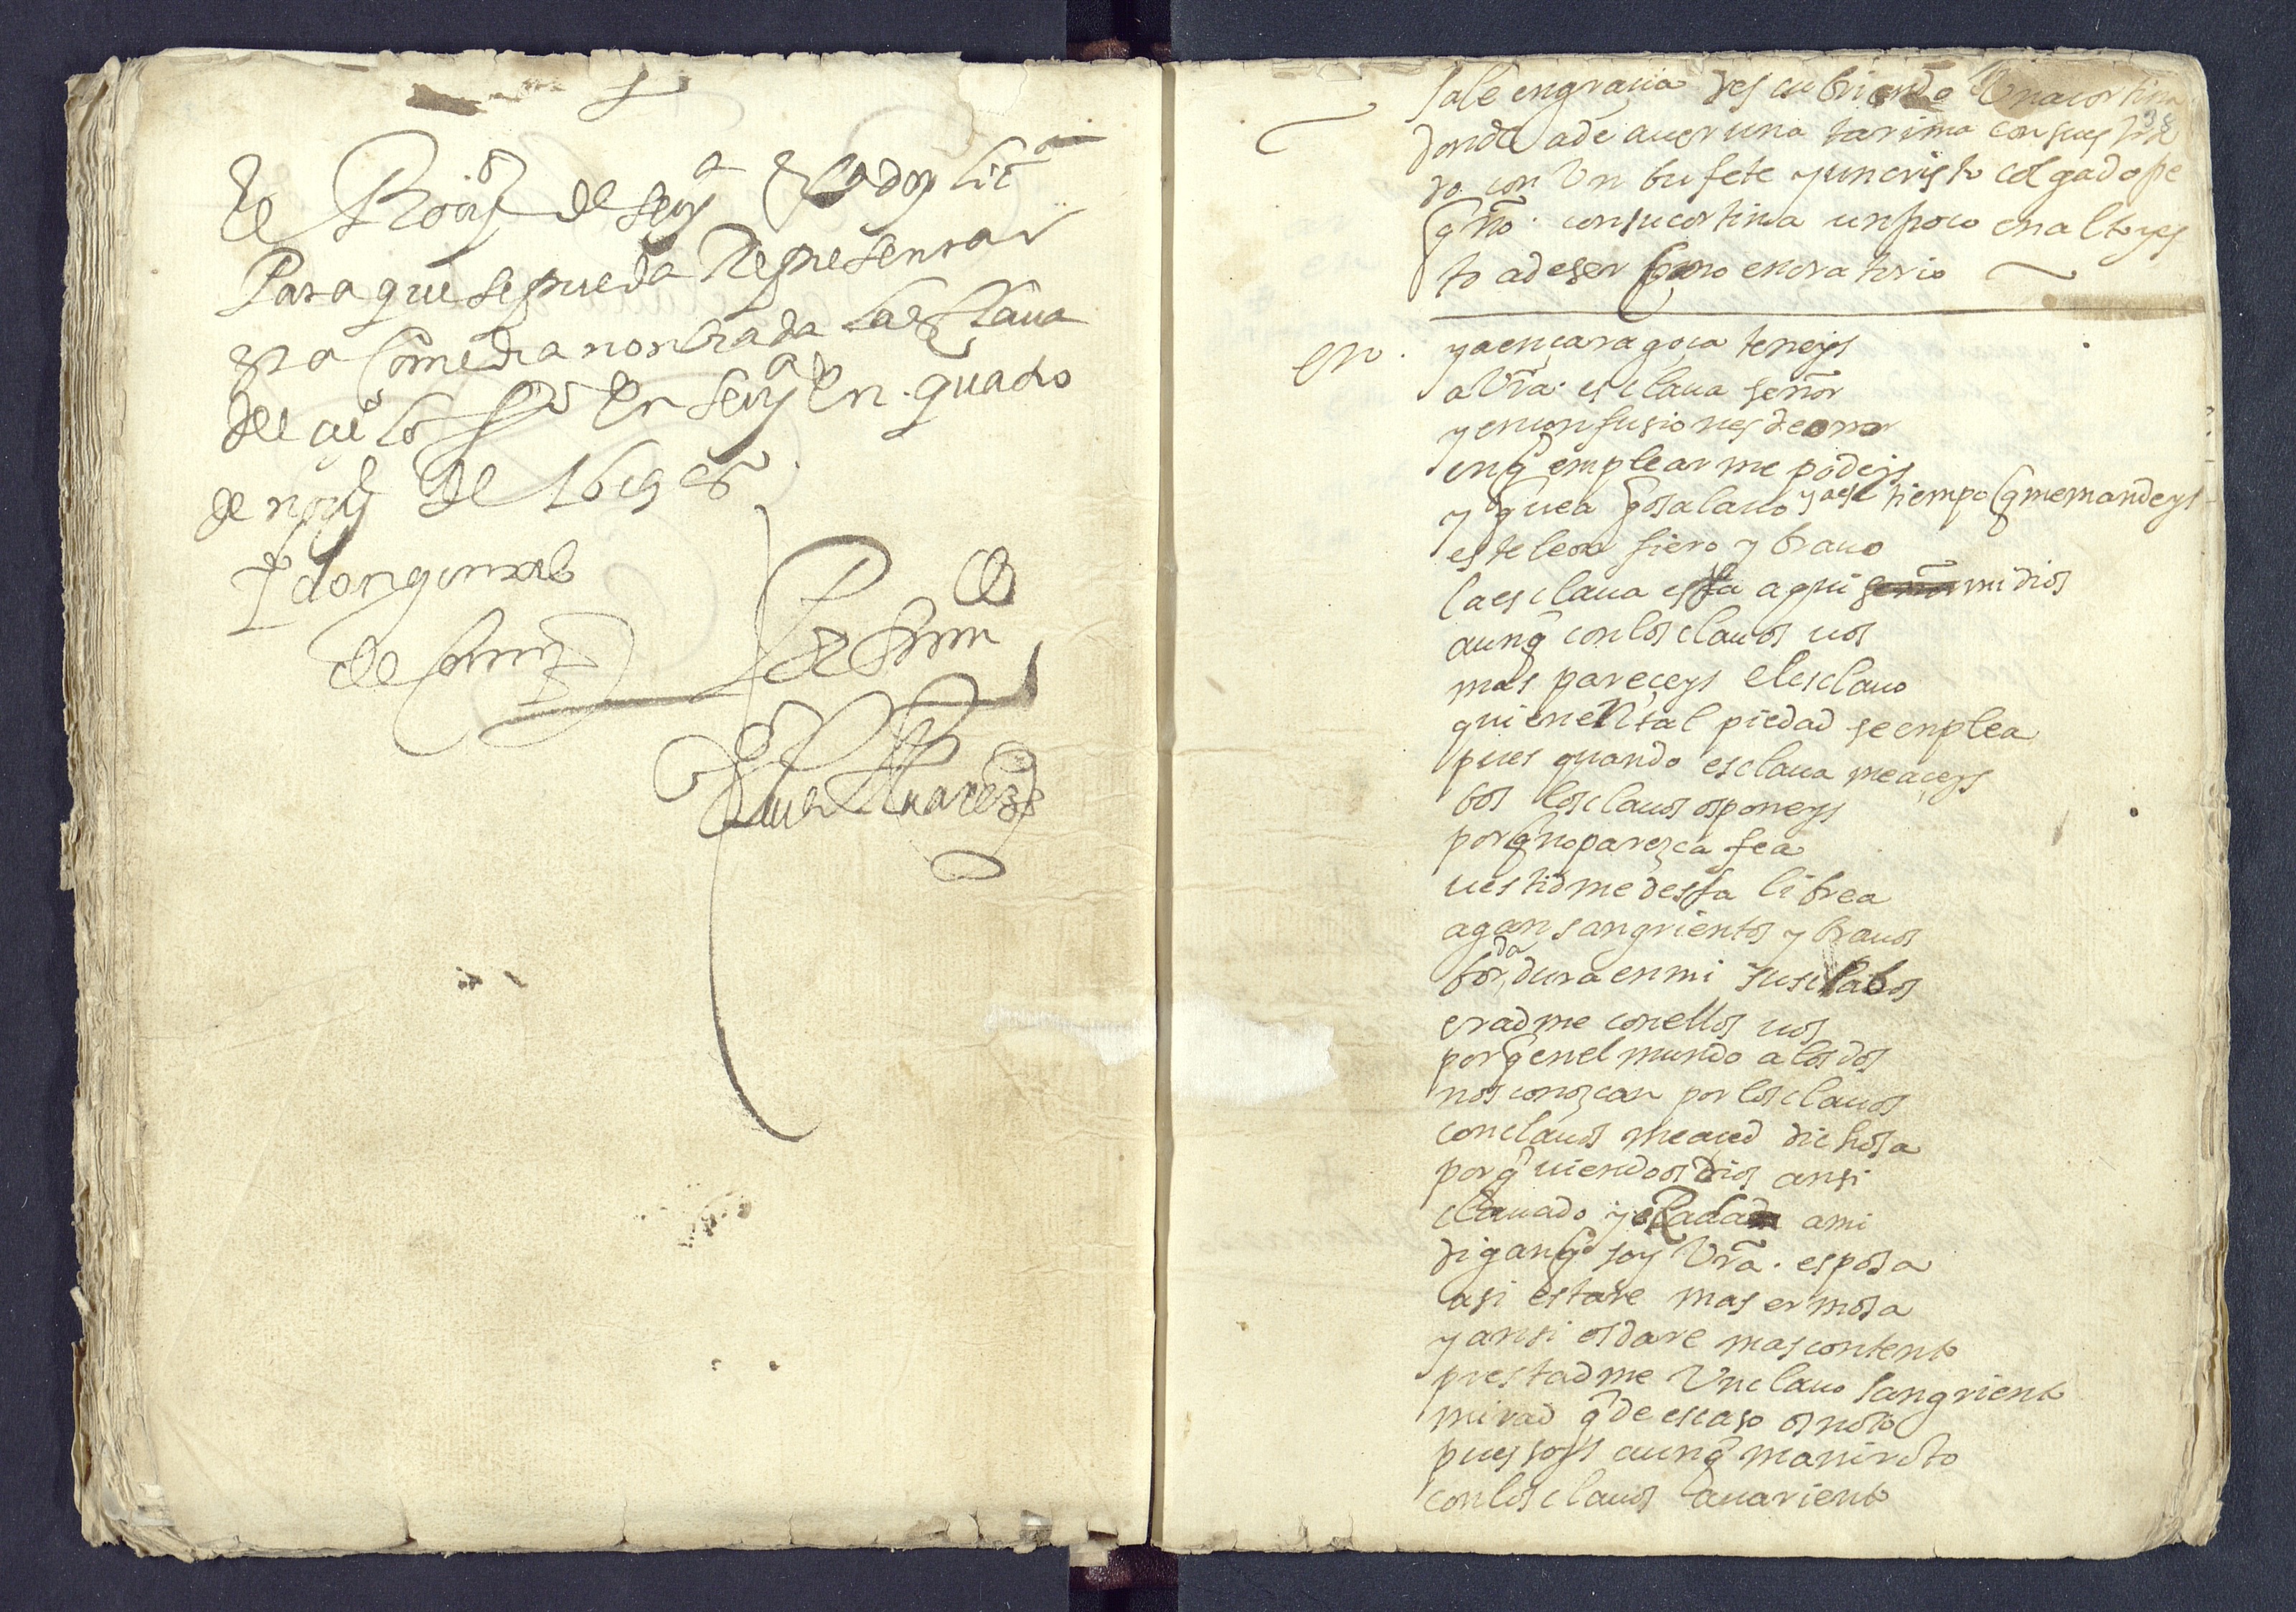 Para que se pueda Representar
esta Comedia nonbrada la esclaua
del çielo en seuª en quatro
de de 1619 as
sale engraçia descubriendo una cortina
donde a de auer una tarima con su es tra
do con Un bufete y un cristo colgado pe
qño. con su cortina un poco en alto y es
to a de ser como en oratorio
en. ya en çaragoça teneys
a Vrã. esclaua señor
y en confusiones de amor
en q̃ emplearme podeys
y ya es tiempo q̃ me mandeys
este leon fiero y brauo
la esclaua esta aqui mi dios
aunq̃ con los clauos uos
mas pareçeys el esclauo
quien en tal piedad se enplea
pues quando esclaua me açeys
bos los clauos os poneys
porq̃ no parezca fea
uestidme dessa librea
agan sangrientos y brauos
bordadura en mi sus clabos
eradme con ellos uos
porq̃ en el mundo a los dos
nos conozcan por los clauos
con clauos me aced dichosa
porq̃ uiendo os dios ansi
clauado y eRada a mi
digan q̃ soy Vrã. esposa
asi estare mas ermosa
y ansi os dare mas contento
prestadme Un clauo sangriento
mirad q̃ de escaso os noto
pues soys aunq̃ maniroto
con los clauos auariento